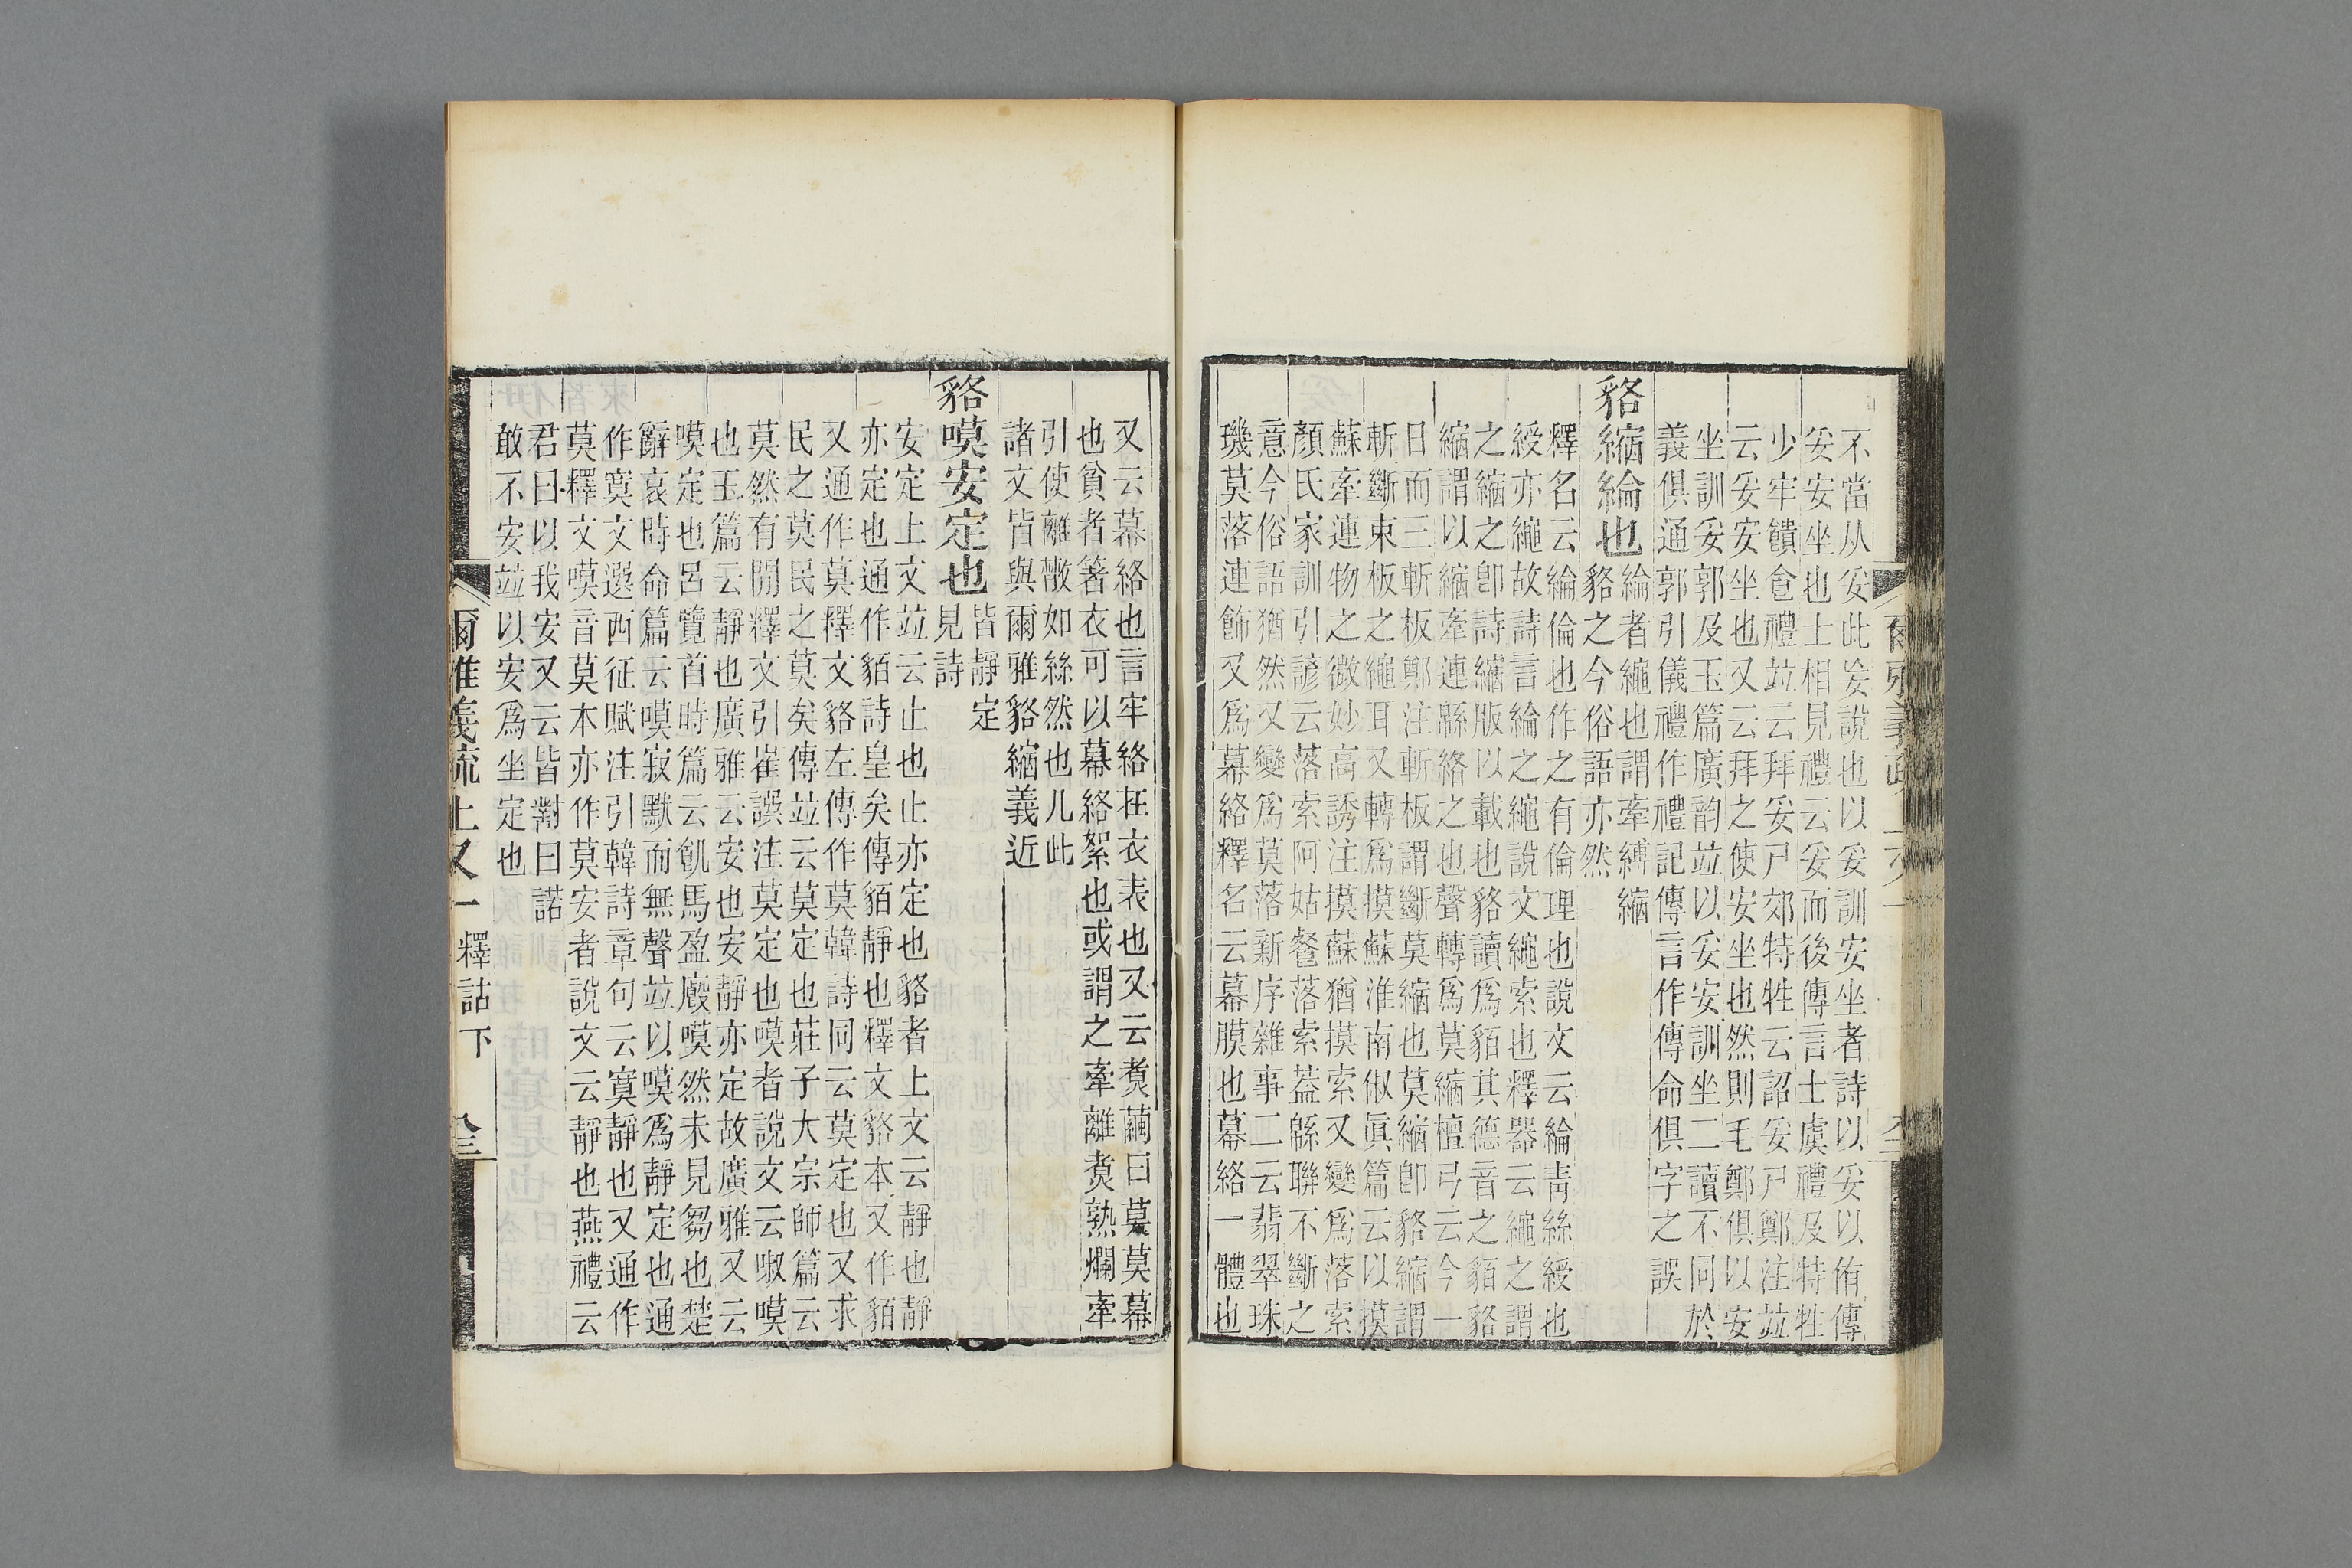 不當从妥此妥說也以妥訓安坐者詩以妥以侑傳
妥安坐也士相見禮云妥而後傳言士虞禮及特牲
少牢饋食禮竝云拜妥尸郊特牲云詔妥尸鄭注竝
云妥安坐也又云拜之使安坐也然則毛鄭俱以安
坐訓妥郭及玉篇廣韵竝以妥安訓坐二讀不同於
義俱通郭引儀禮作禮記傳言作傳命俱字之誤
貉縮綸也
綸者繩也謂牽縛縮
貉之今俗語亦然
釋名云綸倫也作之有倫理也說文云綸靑絲綬也
綬亦繩故詩言綸之繩說文繩索也釋器云繩之謂
之縮之卽詩縮版以載也貉讀爲貊其德音之貊貉
縮謂以縮牽連緜絡之也聲轉爲莫縮檀弓云今一
日而三斬板鄭注斬板謂斷莫縮也莫縮卽貉縮謂
斬斷束板之繩耳又轉爲摸蘇淮南俶眞篇云以摸
蘇牽連物之微妙高誘注摸蘇猶摸索又變爲落索
顏氏家訓引諺云落索阿姑餐落索葢緜聯不斷之
意今俗語猶然又變爲莫落新序雜事二云翡翠珠
璣莫落連飾又爲幕絡釋名云幕膜也幕絡一體也
又云幕絡也言牢絡在衣表也又云煑繭曰莫莫幕
也貧者箸衣可以幕絡絮也或謂之牽離煑熟爛牽
引使離散如絲然也凡此
諸文皆與爾雅貉縮義近
貉嗼安定也
皆靜定
見詩
安定上文竝云止也止亦定也貉者上文云靜也靜
亦定也通作貊詩皇矣傳貊靜也釋文貉本又作貊
又通作莫釋文貉左傳作莫韓詩同云莫定也又求
民之莫民之莫矣傳竝云莫定也莊子大宗師篇云
莫然有閒釋文引崔譔注莫定也嗼者說文云啾嗼
也玉篇云靜也廣雅云安也安靜亦定故廣雅又云
嗼定也呂覽首時篇云飢馬盈廄嗼然未見芻也楚
辭哀時命篇云嗼寂默而無聲竝以嗼爲靜定也通
作寞文選西征賦注引韓詩章句云寞靜也又通作
莫釋文嗼音莫本亦作莫安者說文云靜也燕禮云
君曰以我安又云皆對曰諾
敢不安竝以安爲坐定也
爾雅義疏上又一 釋詁下 全三